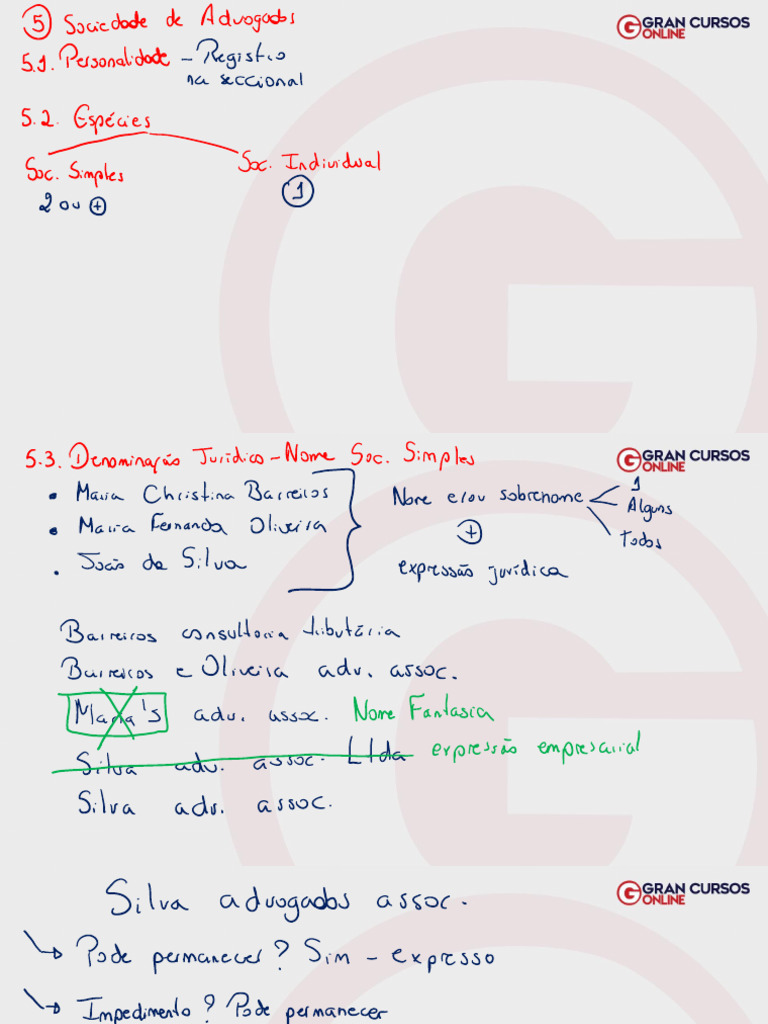 5 Sociedade de Advogados
GRAN CURSOS
ONLINE
5.1. Personalidade - Registro
na seccional
5.2. Espécies
Soc. Simples
Soc. Individual
2 ou +
1
5.3. Denominação Jurídico - Nome Soc. Simples
GRAN CURSOS
ONLINE
• Maria Christina Barreiros
• Maria Fernanda Oliveira
• João da Silva
Nome e/ou sobrenome
1
Alguns
Todos
+
expressão jurídica
Barreiros consultoria tributária
Barreiros e Oliveira adv. assoc.
Maria's adv. assoc. Nome Fantasia
Silva adv. assoc. Ltda expressão empresarial
Silva adv. assoc.
GRAN CURSOS
ONLINE
Silva advogados assoc.
Pode permanecer? Sim - expresso
Impedimento? Pode permanecer